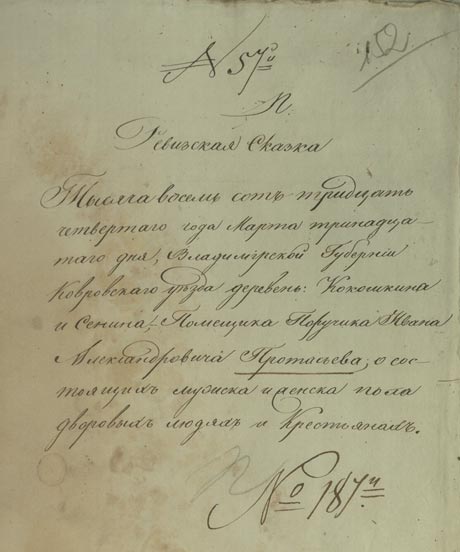 № 57й
152
П.
Ревизская Сказка
Тысяча восемь сотъ тридцать
четвертаго года Марта тринадца-
таго дня, Владимiрской Губернiи
Ковровскаго уѣзда деревень: Кокошкина
и Сенина, Помещика Поручика Ивана
Александровича Протасьева, о сос-
тоящихъ мужска и женска пола
дворовыхъ людяхъ и Крестьянахъ.
№ 187й